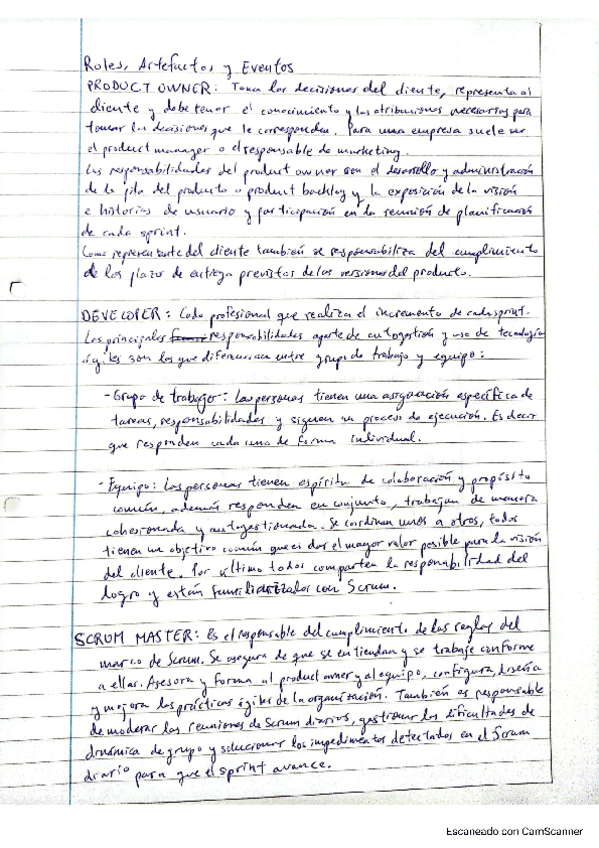 Roles, Artefactos y Eventos
PRODUCT OWNER: Toma las decisiones del cliente, representa al
cliente y debe tener el conocimiento y las atribuciones necesarias para
tomar las decisiones que le corresponden. Para una empresa suele ser
el product manager o el responsable de marketing.
Las responsabilidades del product owner son el desarrollo y administración
de la pila del producto o product backlog y la exposición de la visión
e historias de usuario y participación en la reunión de planificación
de cada sprint.
Como representante del cliente también se responsabiliza del cumplimiento
de los plazos de entrega previstas de las versiones del producto.
DEVELOPER: Cada profesional que realiza el incremento de cada sprint.
Las principales responsabilidades aparte de autogestión y uso de tecnología
ágiles son las que diferencian entre grupo de trabajo y equipo:
- Grupo de trabajo: Las personas tienen una asignación específica de
tareas, responsabilidades y siguen un proceso de ejecución. Es decir
que responden cada una de forma individual.
- Equipo: Las personas tienen espíritu de colaboración y propósito
común, además responden en conjunto, trabajan de manera
cohesionada y autogestionada. Se coordinan unos a otros, todos
tienen un objetivo común que es dar el mayor valor posible para la visión
del cliente. Por último todos comparten la responsabilidad del
logro y están familiarizados con Scrum.
SCRUM MASTER: Es el responsable del cumplimiento de las reglas del
marco de Scrum. Se asegura de que se entiendan y se trabaje conforme
a ellas. Asesora y forma al product owner y al equipo, configura, diseña
y mejora las prácticas ágiles de la organización. También es responsable
de moderar las reuniones de Scrum diarios, gestionar las dificultades de
dinámica de grupo y solucionar los impedimentos detectados en el Scrum
diario para que el sprint avance.
Escaneado con CamScanner